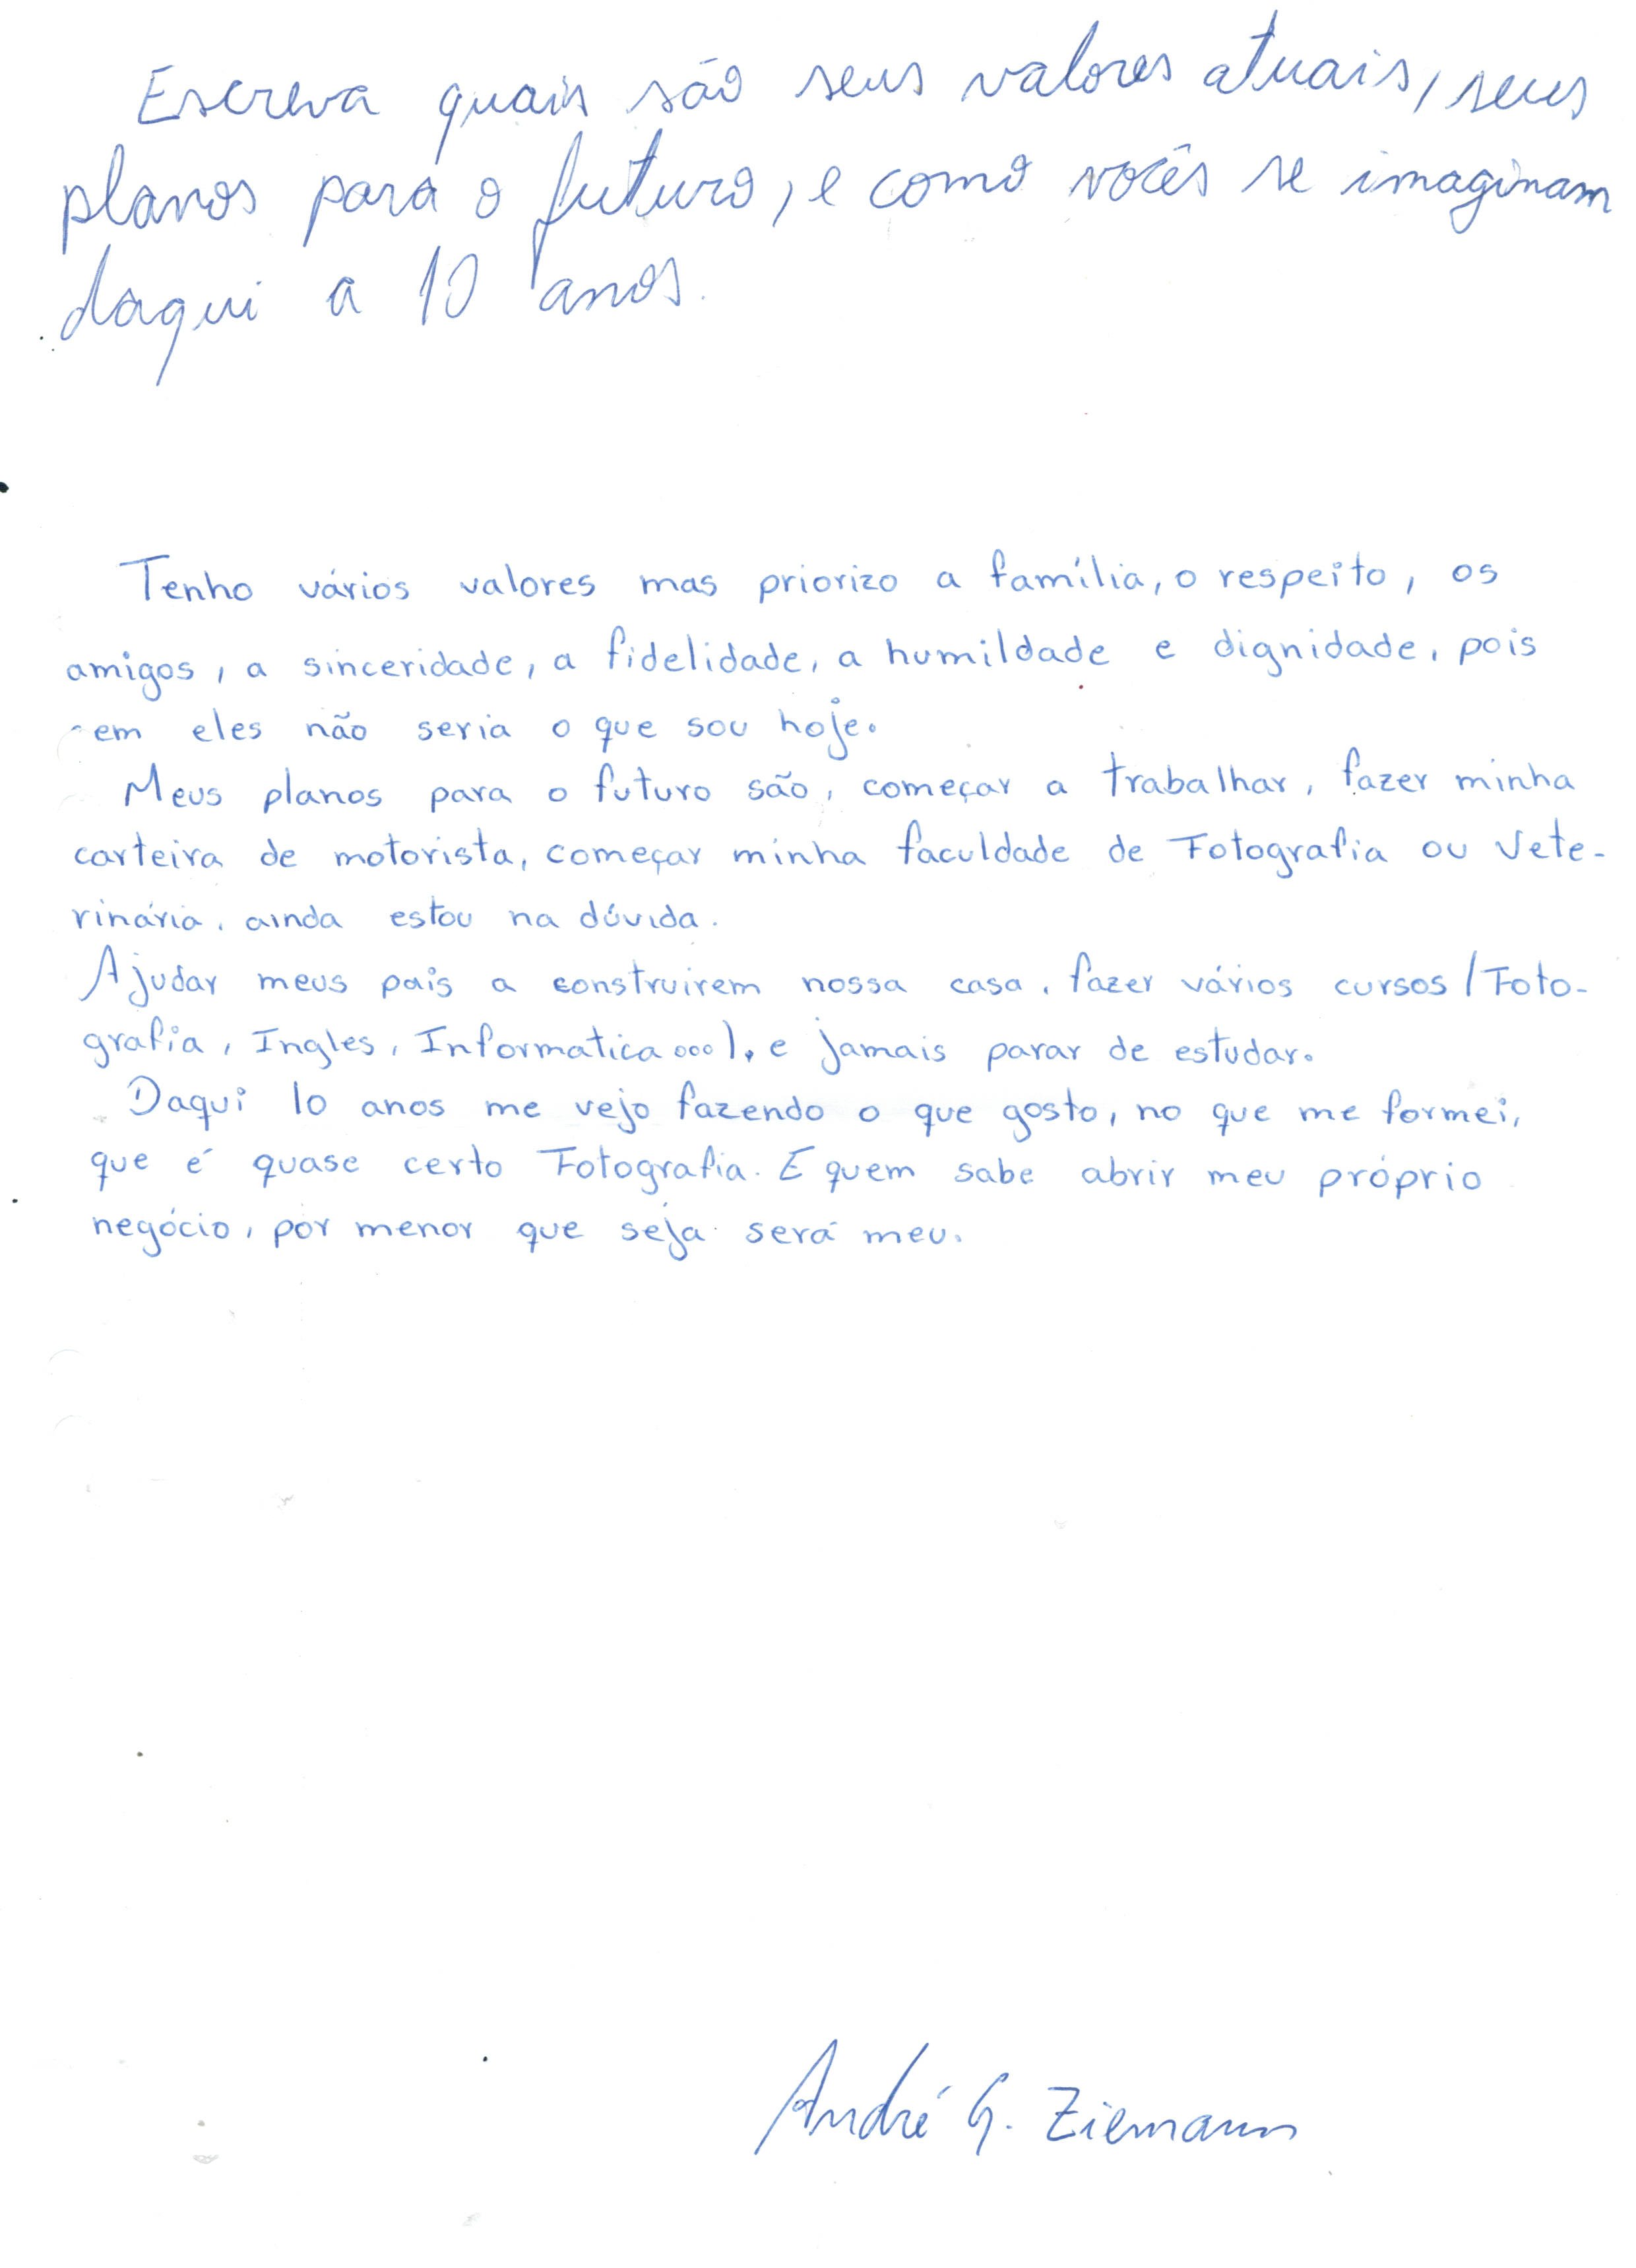 Escreva quais são seus valores atuais, seus
planos para o futuro, e como vocês se imaginam
daqui a 10 anos.
Tenho vários valores mas priorizo a família, o respeito, os
amigos, a sinceridade, a fidelidade, a humildade e dignidade, pois
sem eles não seria o que sou hoje.
Meus planos para o futuro são, começar a trabalhar, fazer minha
carteira de motorista, começar minha faculdade de Fotografia ou Vete-
rinária, ainda estou na dúvida.
Ajudar meus pais a construirem nossa casa, fazer vários cursos (Foto-
grafia, Ingles, Informatica...), e jamais parar de estudar.
Daqui 10 anos me vejo fazendo o que gosto, no que me formei,
que é quase certo Fotografia. E quem sabe abrir meu próprio
negócio, por menor que seja será meu.
André G. Ziemann